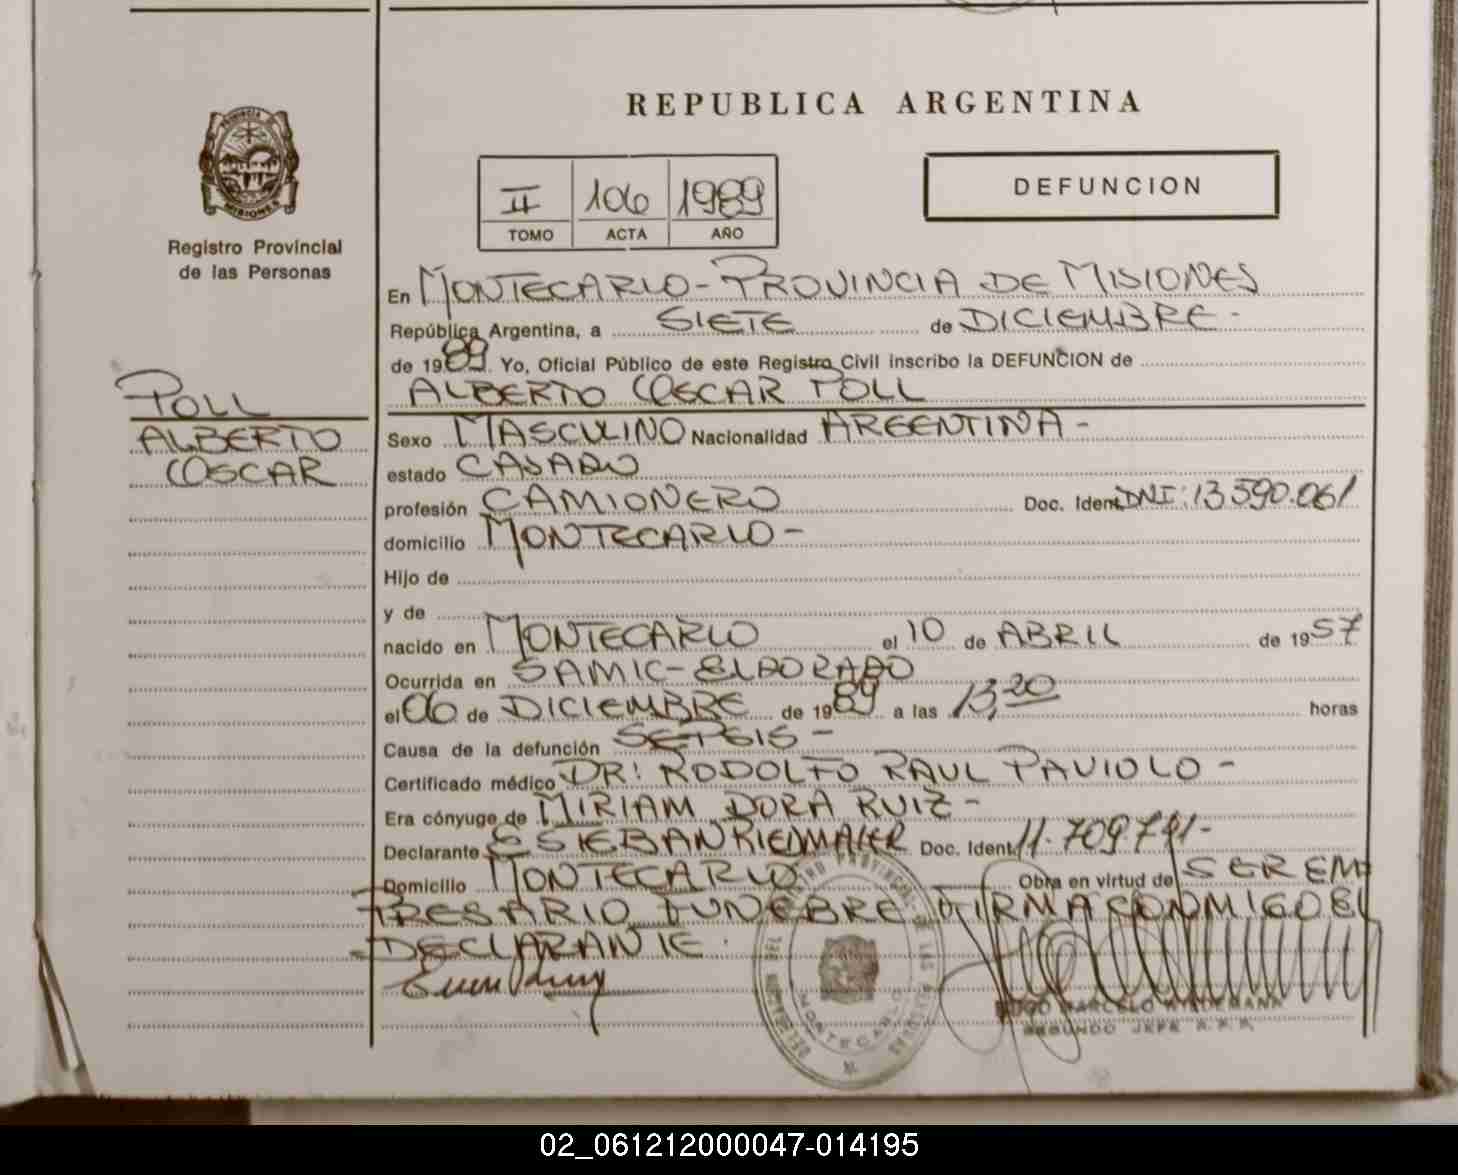 REPUBLICA ARGENTINA
PROVINCIA
MISIONES
Registro Provincial
de las Personas
II 106 1989
TOMO ACTA AÑO
DEFUNCION
En MONTECARLO - PROVINCIA DE MISIONES
República Argentina, a SIETE de DICIEMBRE -
de 1989. Yo, Oficial Público de este Registro Civil inscribo la DEFUNCION de
ALBERTO OSCAR POLL
POLL
ALBERTO
OSCAR
Sexo MASCULINO Nacionalidad ARGENTINA -
estado CASADO
profesión CAMIONERO Doc. Ident. DNI: 13.590.061
domicilio MONTECARLO -
Hijo de
y de
nacido en MONTECARLO el 10 de ABRIL de 1957
Ocurrida en SAMIC - ELDORADO
el 06 de DICIEMBRE de 1989 a las 13,20 horas
Causa de la defunción SEPSIS -
Certificado médico DR: RODOLFO RAUL PAVIOLO -
Era cónyuge de MIRIAM DORA RUIZ -
Declarante ESTEBAN RIEDMAIER Doc. Ident. 11.709.791 -
Domicilio MONTECARLO Obra en virtud de SER EM
PRESARIO FUNEBRE FIRMA CONMIGO EL
DECLARANTE.
MONTECARLO
MARCELO
SEGUNDO JEFE R.P.P.
02_061212000047-014195